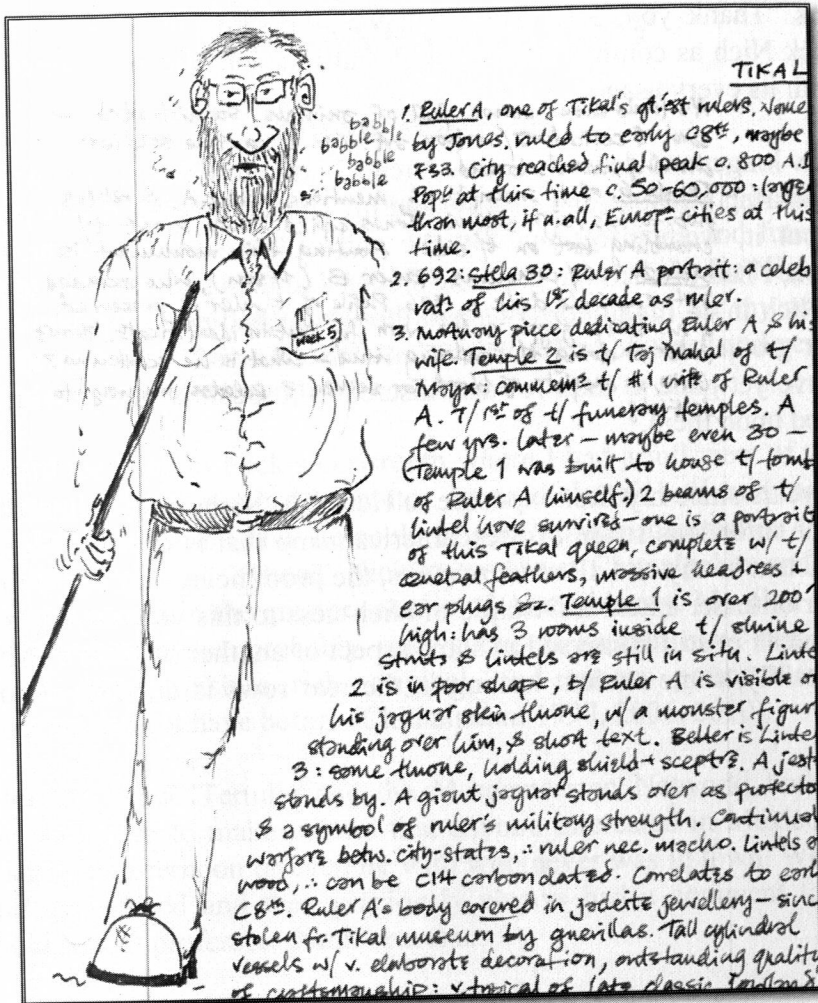 TIKAL
babble
babble
babble
babble
Week 5
1. Ruler A, one of Tikal's gtest rulers. Name
by Jones, ruled to early C8th, maybe
733. City reached final peak c. 800 A.D
Popn at this time c. 50-60,000: larger
than most, if n. all, Europn cities at this
time.
2. 692: Stela 30: Ruler A portrait: a celeb
ratn of his 1st decade as ruler.
3. mortuary piece dedicating Ruler A & his
wife. Temple 2 is t/ Taj Mahal of t/
Maya: commems t/ #1 wife of Ruler
A. T/ 1st of t/ funerary temples. A
few yrs. later – maybe even 30 –
(Temple 1 was built to house t/ tomb
of Ruler A himself.) 2 beams of t/
lintel have survived – one is a portrait
of this Tikal queen, complete w/ t/
quetzal feathers, massive headress
ear plugs &c. Temple 1 is over 200'
high: has 3 rooms inside t/ shrine
struts & lintels are still in situ. Linte
2 is in poor shape, b/ Ruler A is visible on
his jaguar skin throne, w/ a monster figur
standing over him, & short text. Better is Lintel
3: same throne, holding shield + sceptre. A jest
stands by. A giant jaguar stands over as protecto
& a symbol of ruler's military strength. Continual
warfare betw. city-states, ∴ ruler nec. macho. Lintels o
wood, ∴ can be C14 carbon dated. Correlates to earl
C8th. Ruler A's body covered in jadeite jewellery – sinc
stolen fr. Tikal museum by guerillas. Tall cylindral
vessels w/ v. elaborate decoration, outstanding quality
of craftsmanship: v. typical of late classic